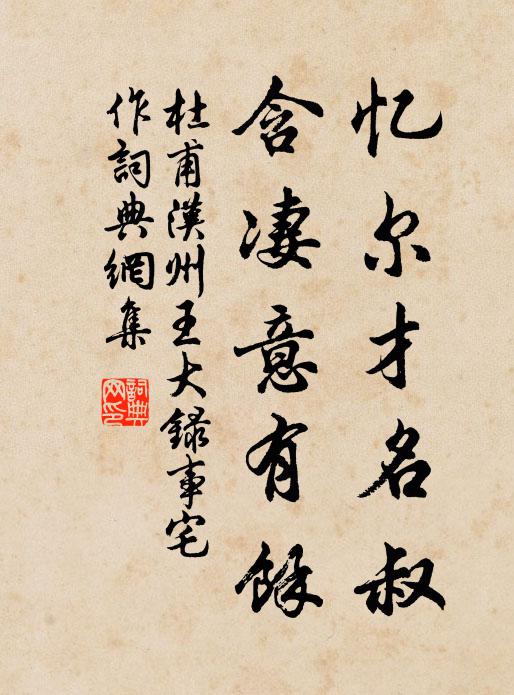 忆尔才名叔
含凄意有馀
杜甫漢州王大録事宅
作詞典網集
詞典
网印